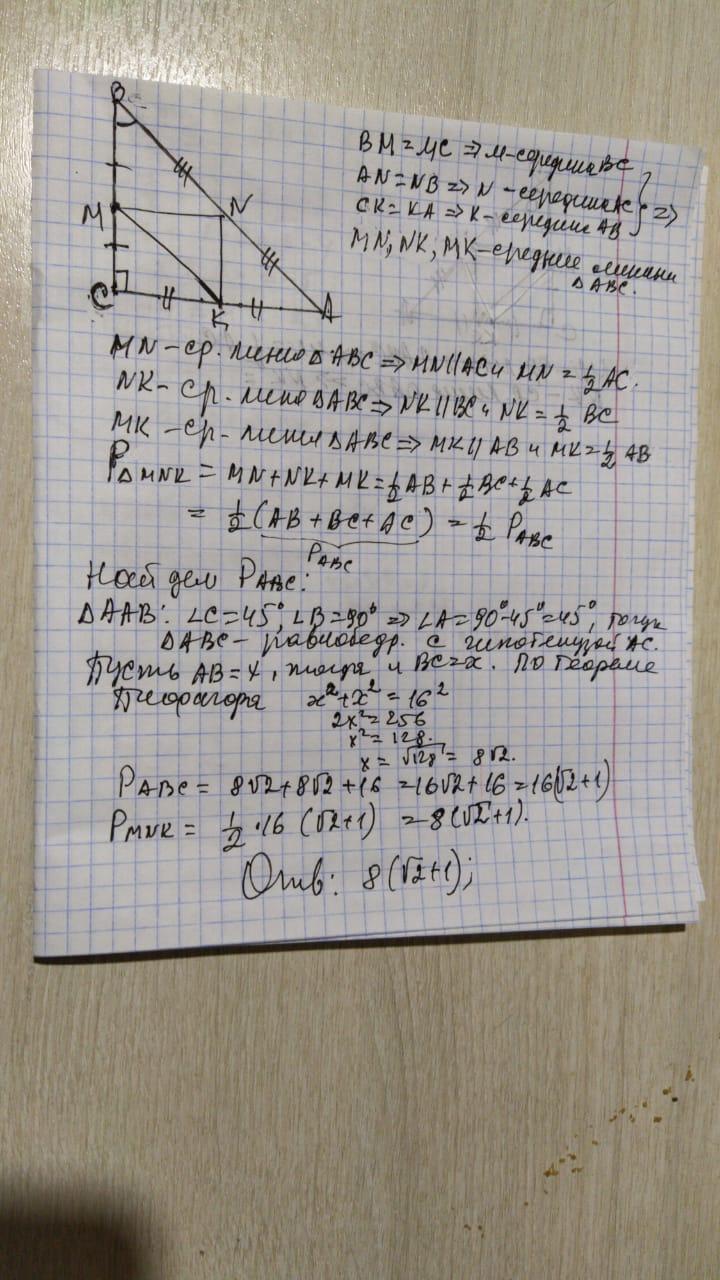 B
M
N
C
K
A
BM = MC ⇒ M - середина BC
AN = NB ⇒ N - середина AC
CK = KA ⇒ K - середина AB } ⇒
MN, NK, MK - средние линии
△ABC.
MN - ср. линия △ABC ⇒ MN || AC и MN = 1/2 AC.
NK - ср. линия △ABC ⇒ NK || BC и NK = 1/2 BC
MK - ср. линия △ABC ⇒ MK || AB и MK = 1/2 AB
P△MNK = MN + NK + MK = 1/2 AB + 1/2 BC + 1/2 AC
= 1/2 (AB + BC + AC) = 1/2 PABC
PABC
Найдем PABC:
△AAB: ∠C = 45°, ∠B = 90° ⇒ ∠A = 90° - 45° = 45°, тогда
△ABC - равнобедр. с гипотенузой AC.
Пусть AB = x, тогда и BC = x. По теореме
Пифагора x² + x² = 16²
2x² = 256
x² = 128.
x = √128 = 8√2.
PABC = 8√2 + 8√2 + 16 = 16√2 + 16 = 16(√2+1)
PMNK = 1/2 · 16 (√2+1) = 8(√2+1).
Отв: 8(√2+1);